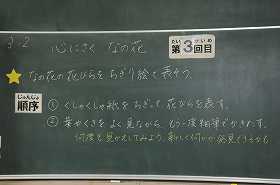 3-2
心にさく なの花
だい かいめ
第3回目
なの花の花びらを ちぎり絵で表そう。
じゅんじょ
順序
① くしゃくしゃ紙をちぎって、花びらを表す。
② 葉やくきを よく見ながら、もう一度鉛筆でかきます。
何度も見かえしてみよう。新しく何かが発見できるかも